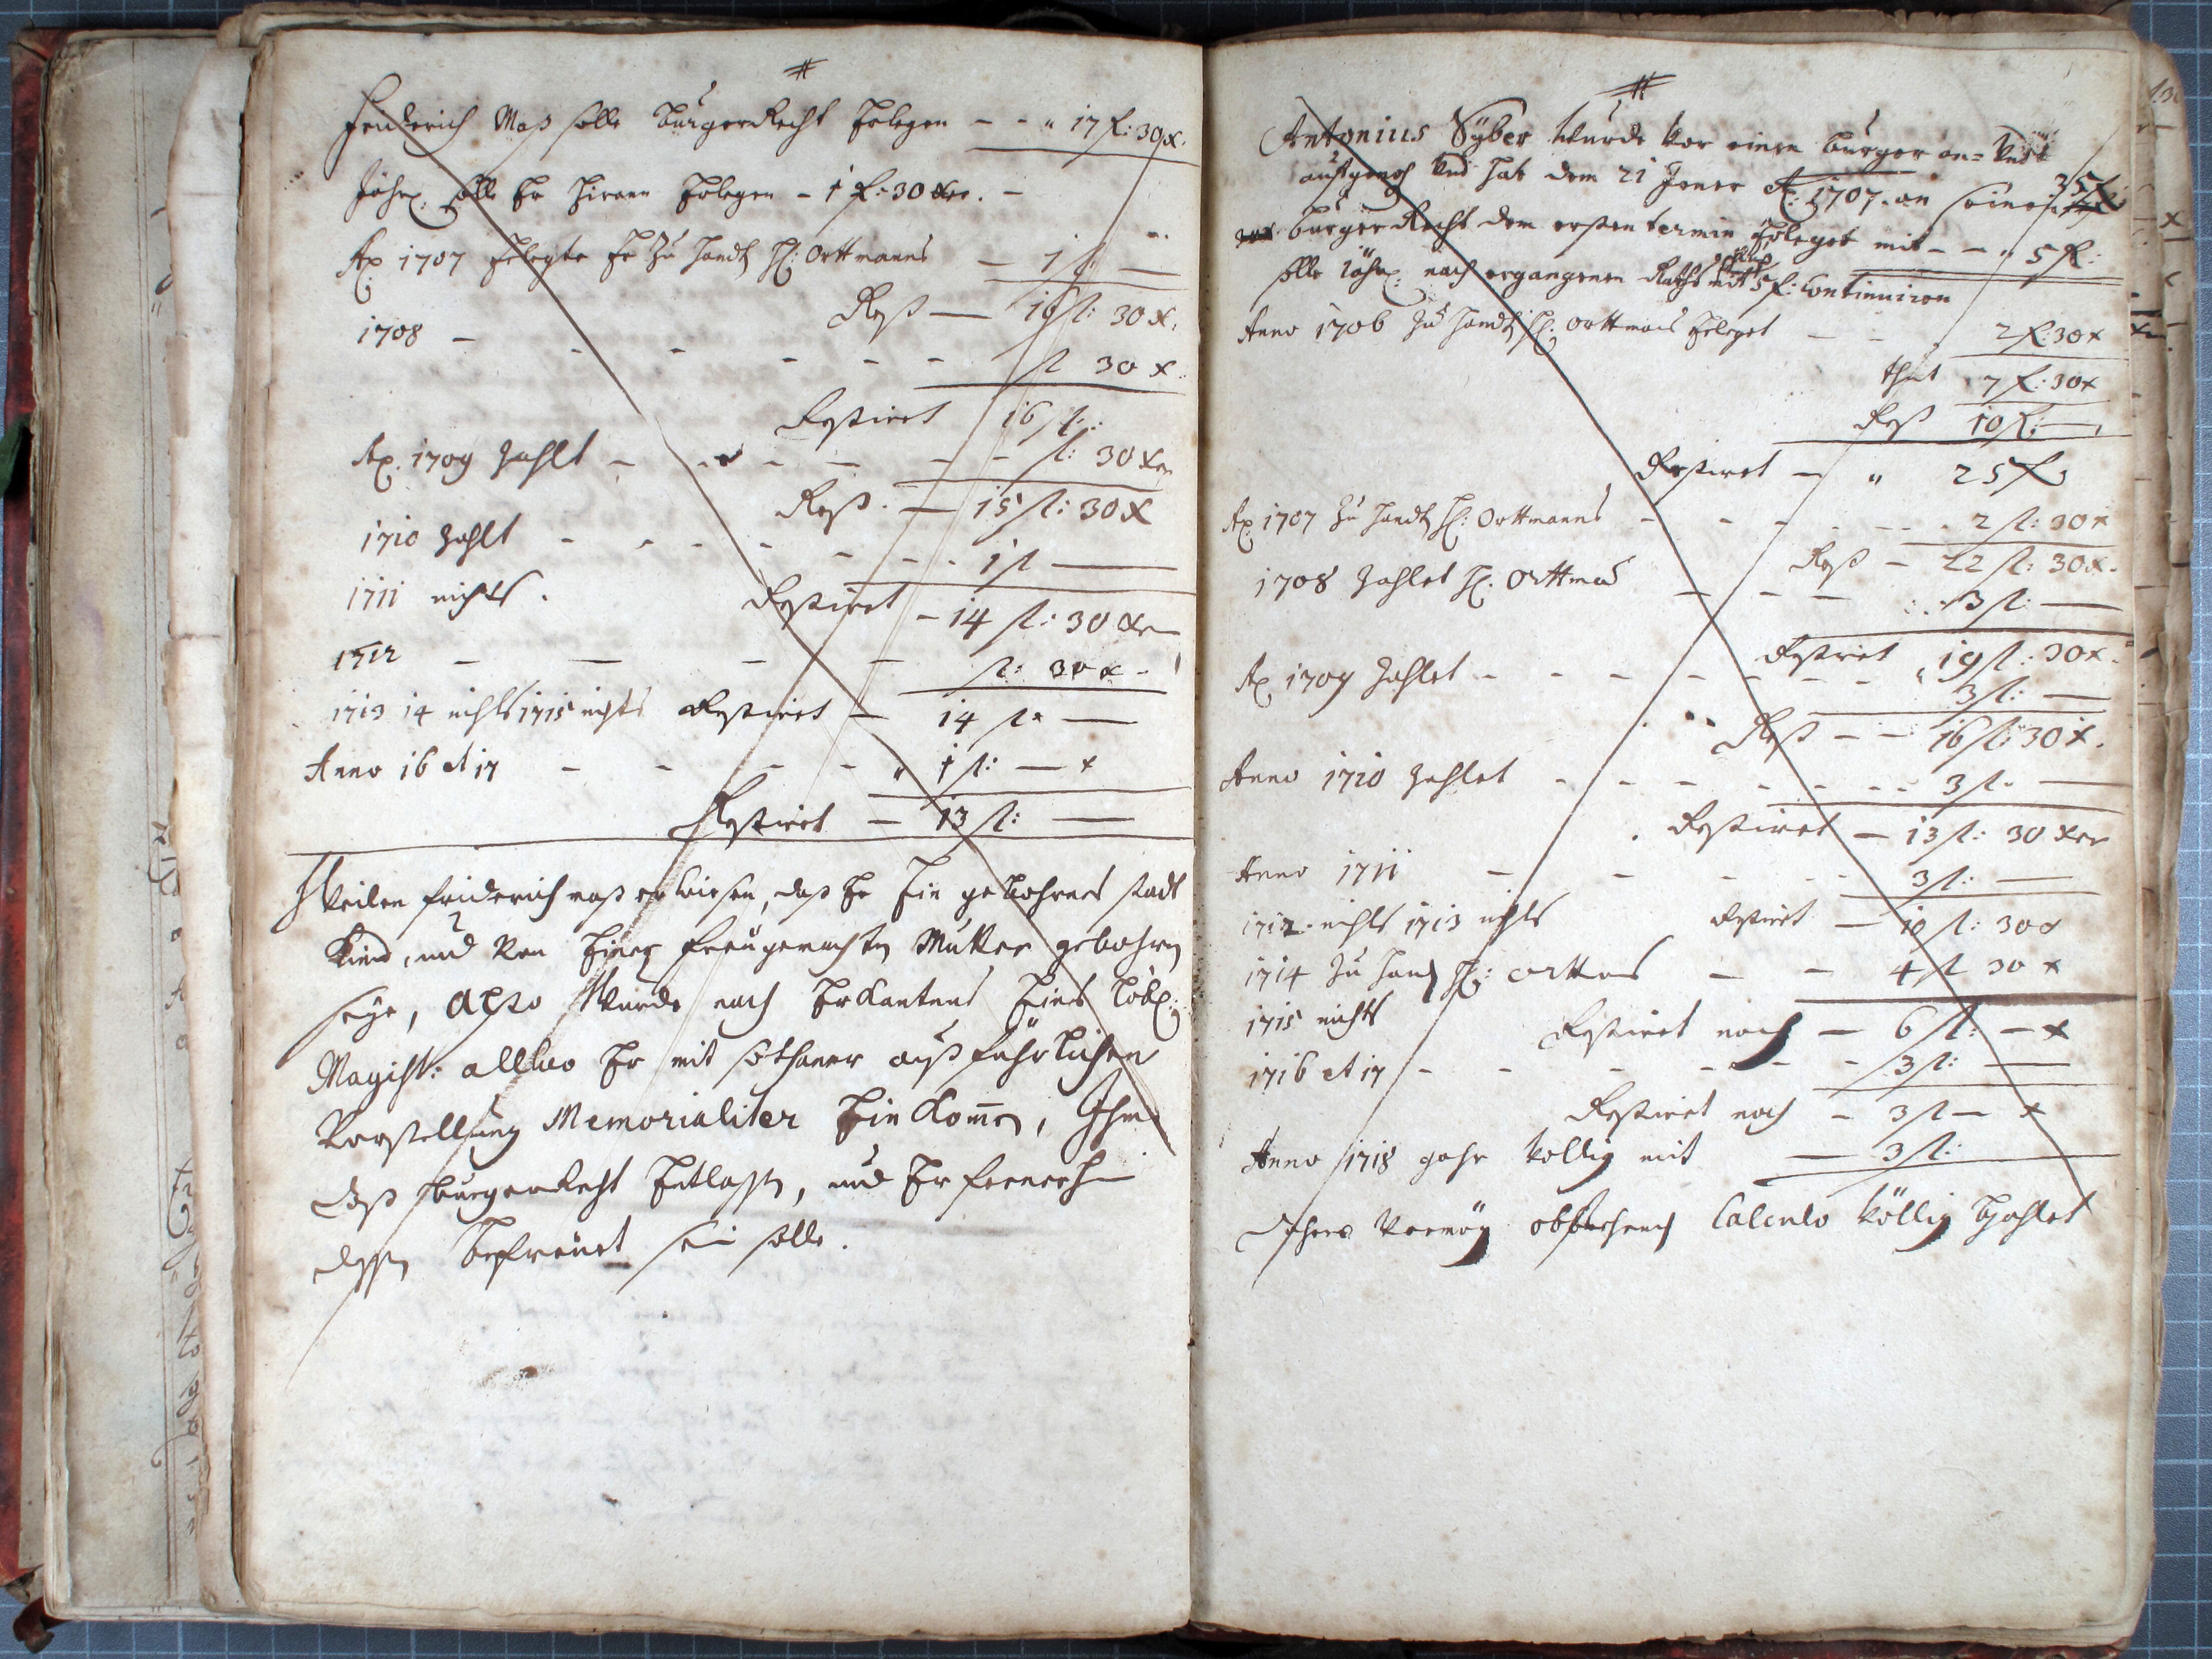 #
Friderich Maß solle burgerRecht Erlegen - - " 17 fl: 30 x.
Jährl. solle Er hieran Erlegen - 1 fl: 30 xer. -
Ao. 1707 Erlegte Er Zu handt H: Orttmanns — 1 fl —
Rest — 16 fl: 30 x.
1708 - - - - - - fl 30 x.
Restiret 16 fl:
Ao. 1709 Zahlt - - - - - - fl: 30 xer
Rest. — 15 fl: 30 x
1710 Zahlt - - - - - - - 1 fl —
1711 nichts.
Restiret - 14 fl: 30 xer
1712 - — - - fl: 30 x -
1713 14 nichts 1715 nichts Restiret — 14 fl —
Anno 16 et 17 - - - - " 1 fl: — x
Restiret — 13 fl: —
Weilen friderich maß erwiesen, daß Er Ein gebohrnes statt
Kind, und Von Einer freugemachten Mutter gebohren
seye, Also Wurde nach Erkantnus Eines Löbl:
Magist: allwo Er mit sothaner außführlichen
Vorstellung Memorialiter Einkommen, Ihme
daß burgerRecht Erlassen, und Er fernerhin
dessen befreuet sein solle.
#
Antonius Syber wurde vor einen burger an= Undt
auffgenoh Und hat dem 21 Jener Ao: 1707. an seinen 35 fl:
burgerRecht dem ersten termin Erleget mit - - " 5 fl:
solle Jährl: nach ergangenem Raths mit 5 fl: Continuiren
Anno 1706 Zu handt H: Orttmans Erleget - - 2 fl: 30 x
thut 7 fl: 30 x
Rest 10 fl: —
Restiret - " 25 fl
Ao. 1707 Zu handt H: Orttmanns - - - - - - 2 fl: 30 x
Rest - 22 fl: 30 x.
1708 Zahlet H. Orttmans - - - 3 fl: —
Restiret 19 fl: 30 x.
Ao. 1709 Zahlet - - - - - - - 3 fl: —
Rest - - 16 fl: 30 x.
Anno 1710 Zahlet - - - - - - - 3 fl. —
Restiret - 13 fl: 30 xer
Anno 1711 - - - - - 3 fl: —
1712. nichts 1713 nichts Restiret — 10 fl: 30 x
1714 Zu handt H: Orttmans - - 4 fl 30 x
1715 nichts Restiret noch — 6 fl: — x
1716 et 17 - - - - - - 3 fl: —
Restiret noch - 3 fl — x
Anno 1718 gahr Völlig mit — 3 fl:
Dahero Vermög Calculo Völlig Zahlet